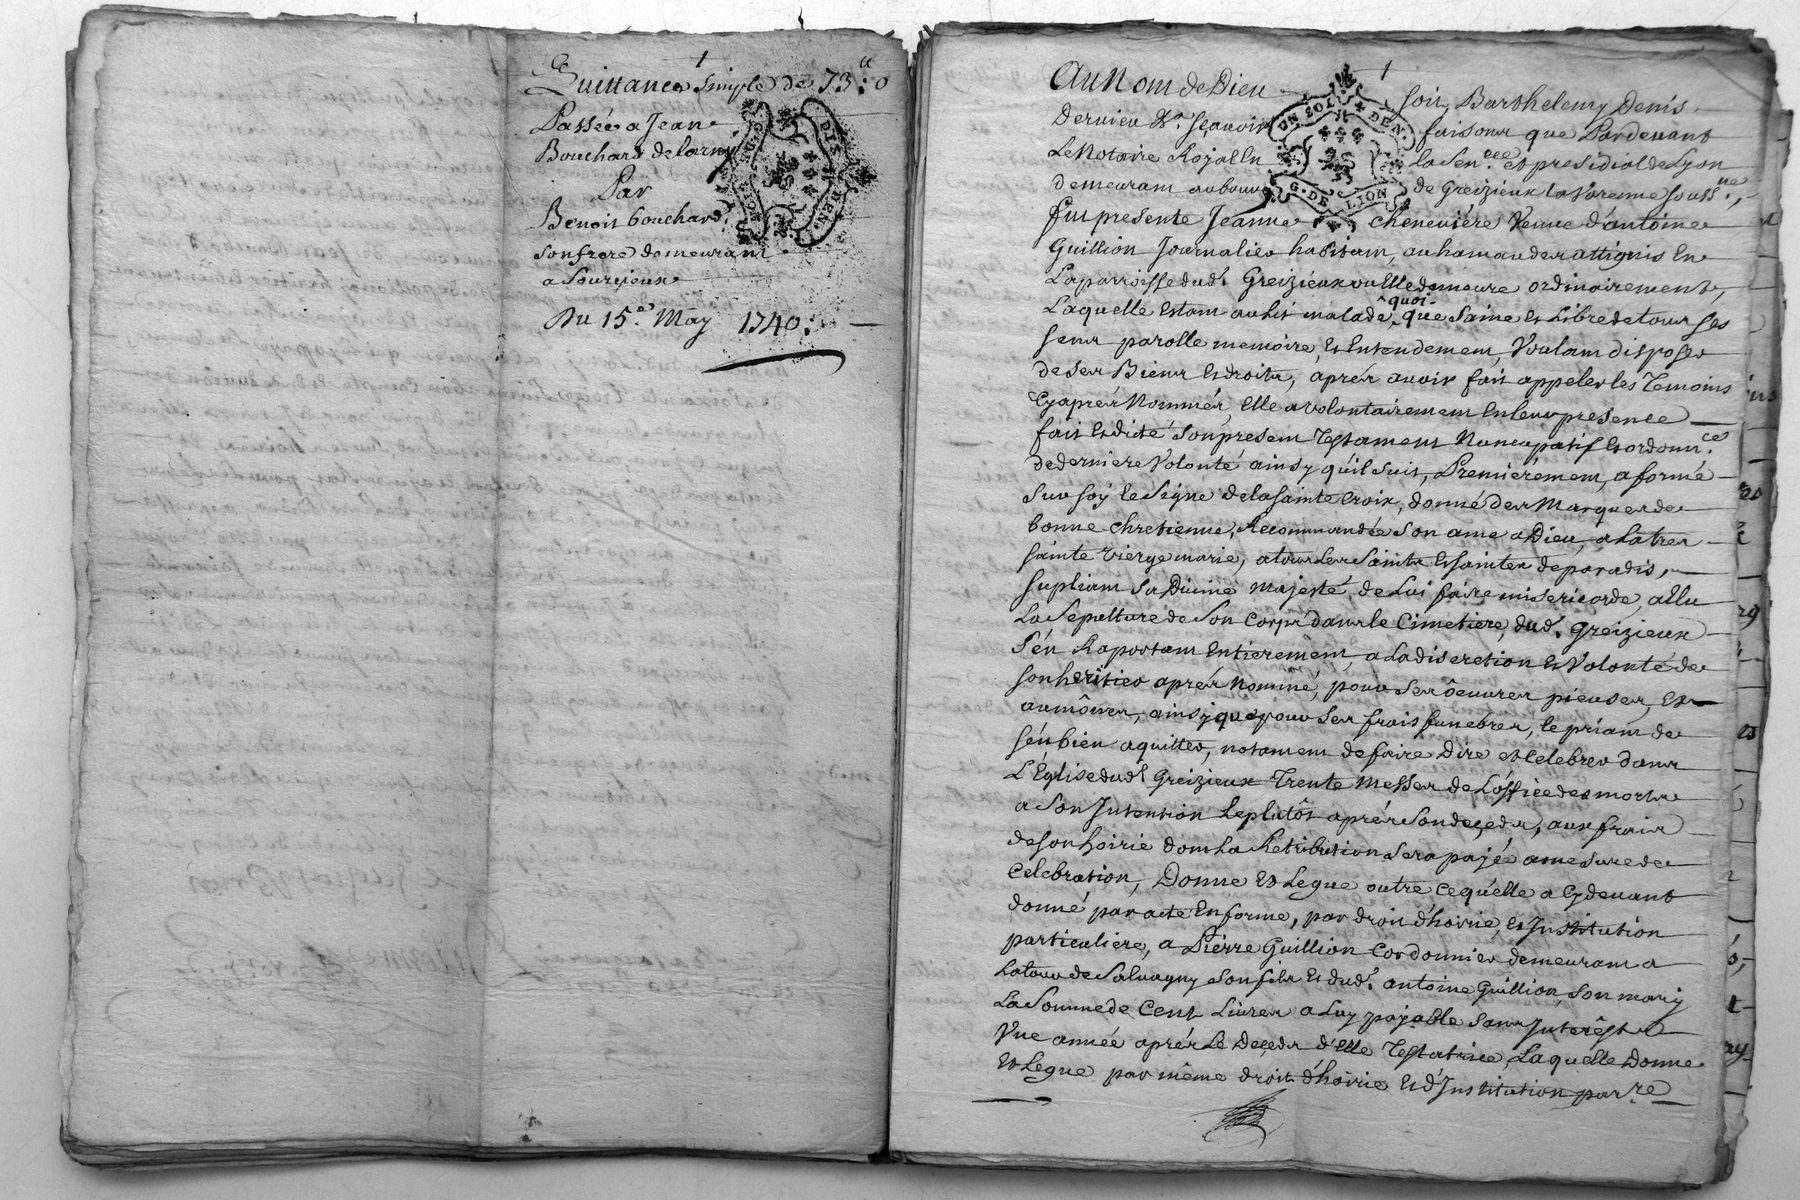 Quittance simple de 73:ᵗᵗ 0
Passée a Jean
Bouchard delarny
Par
Benoit bouchard
son frere demeurant
a Sourzieux
Du 15.ᵉ May 1740:
Au Nom de Dieu soit, Barthelemy Denis
Dervieu Nʳᵉ sçavoir faisons que Pardevant
Le Notaire Royal En la Senᶜᵉᵉ et presidial de Lyon
demeurant au bourg de Greizieux la Varenne soussⁿᵉ,
fut presente Jeanne Chenevière Veuve d'antoine
Guillion Journalier habitant, au hameau des attignis En
La parroisse dud! Greizieux ou Elle demeure ordinairement,
Laquelle Estant au lit malade, quoi que saine et Libre de tous ses
sens parolle memoire, et Entendement, Voulant disposer
de ses Biens Et droits, aprés avoir fait appeler les Temoins
Cy aprés Nommés, Elle a volontairement En leur presence
fait Et dicté son present Testament Nuncupatif et ordonnᶜᵉ
de derniere Volonté ainsy qu'il suit, Premièrement, a formé
sur soÿ le signe de la sainte Croix, donné des Marques de
bonne chretienne, Recommandée son ame a Dieu, a La tres
sainte vierge marie, a tous Les saints Et saintes de paradis,
supliant sa Divine Majesté, de Lui faire misericorde, allu
La sepulture de son Corps dans le Cimetiere, dud! Greizieux
s'én Raportant Entierement, a La discretion Et Volonté de
son heritier aprés Nommé, pour ses œuvres pieuses, Et
aumônes, ainsy que pour ses frais funebres, le priant de
s'én bien aquitter, notament de faire dire et celebrer dans
L'Église dud! Greizieux Trente Messes de L'office des morts
a Son Intention Le plutôt aprés son decçeds, aux frais
de son hoirie dont La Retribution sera payée a mesure de
Celebration, Donne et Legue outre ce qu'elle a Cy devant
donné par acte En forme, par droit d'hoirie, et Institution
particuliere, a Pierre Guillion Cordonnier demeurant a
La tour de Salvagny son fils Et dud! antoine Guillion, son mary
La Somme de Cent Livres a Luy payable sans Interêsts
Vne année aprés Le Decçeds d'Elle Testatrice, Laquelle Donne
et Legue par même droit d'hoirie Et d'Institution parʳᵉ
UN SOL DEN.
G. DE LION